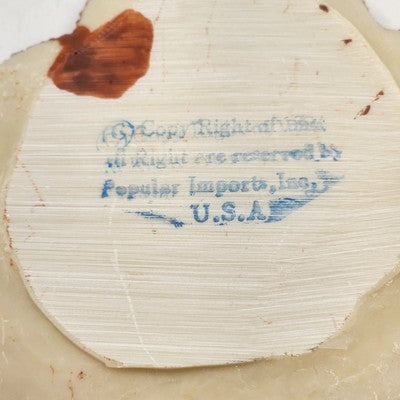 (C) Copy Right of
All Right are reserved by
Popular Imports, Inc,
U.S.A